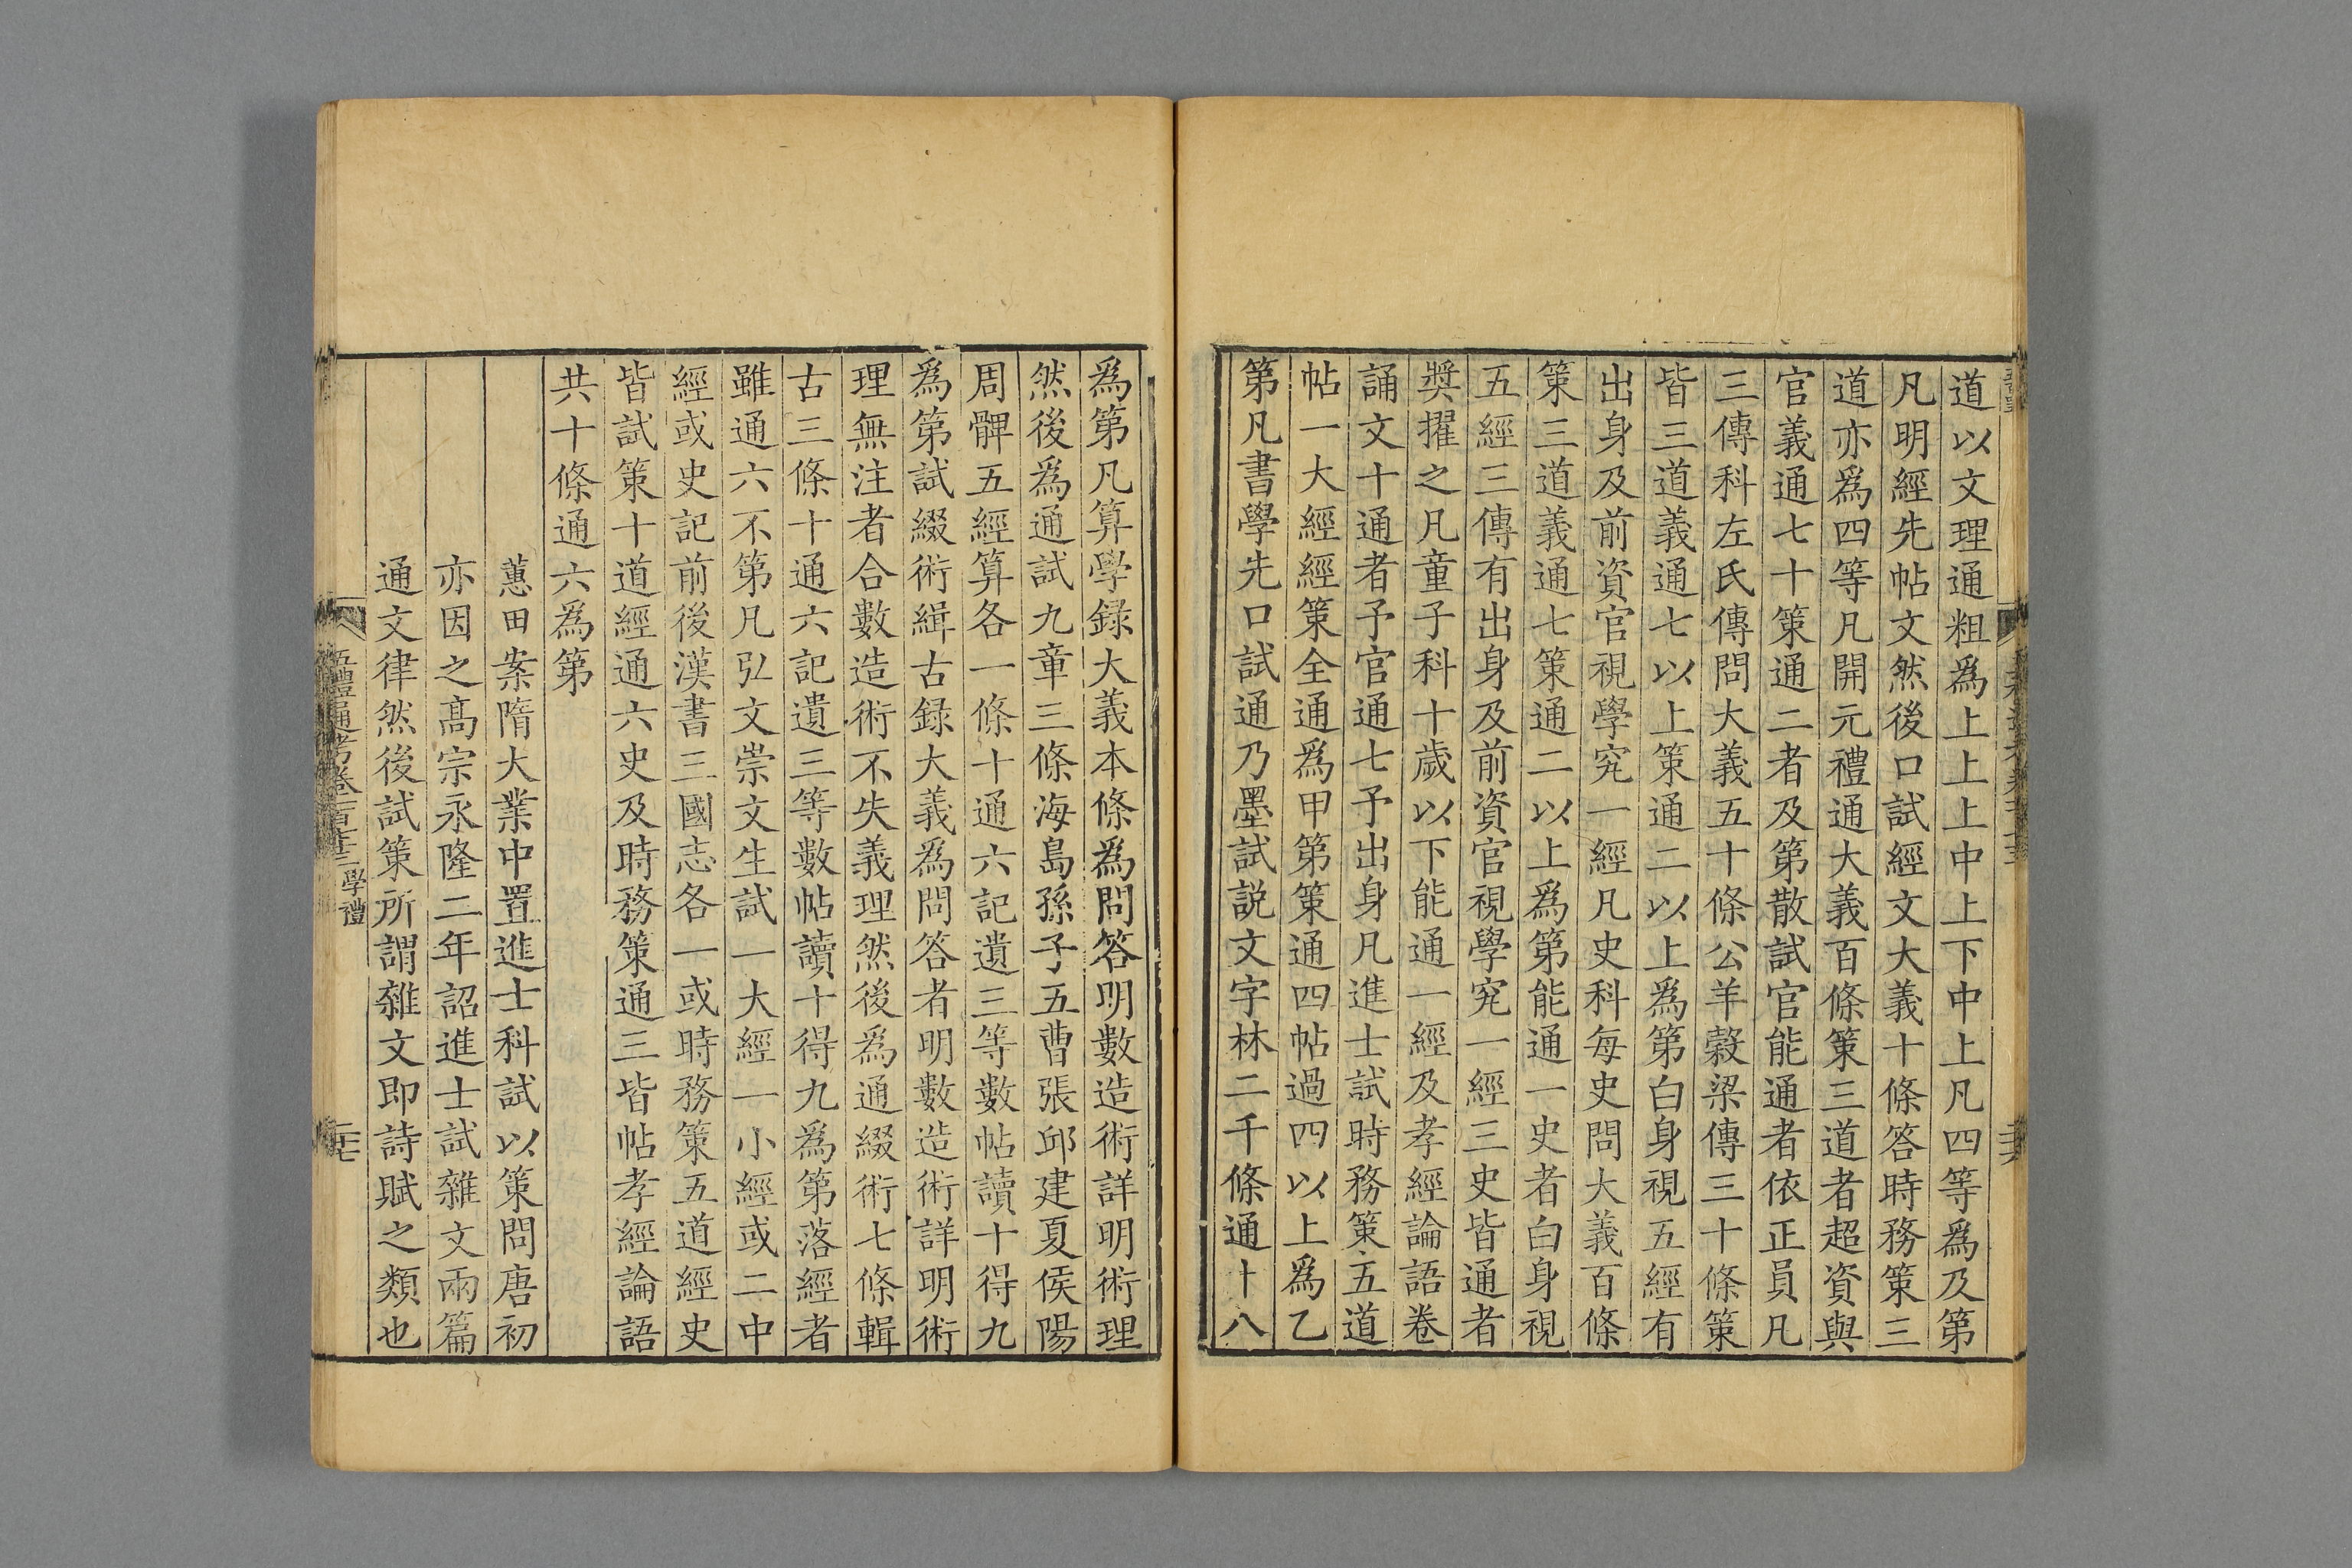 道以文理通粗爲上上上中上下中上凡四等爲及第
凡明經先帖文然後口試經文大義十條答時務策三
道亦爲四等凡開元禮通大義百條策三道者超資與
官義通七十策通二者及第散試官能通者依正員凡
三傳科左氏傳問大義五十條公羊榖梁傳三十條策
皆三道義通七以上策通二以上爲第白身視五經有
出身及前資官視學究一經凡史科每史問大義百條
策三道義通七策通二以上爲第能通一史者白身視
五經三傳有出身及前資官視學究一經三史皆通者
奬擢之凡童子科十歲以下能通一經及孝經論語卷
誦文十通者予官通七予出身凡進士試時務策五道
帖一大經經策全通爲甲第策通四帖過四以上爲乙
第凡書學先口試通乃墨試説文字林二千條通十八
爲第凡算學録大義本條爲問答明數造術詳明術理
然後爲通試九章三條海島孫子五曹張邱建夏侯陽
周髀五經算各一條十通六記遺三等數帖讀十得九
爲第試綴術緝古録大義爲問答者明數造術詳明術
理無注者合數造術不失義理然後爲通綴術七條輯
古三條十通六記遺三等數帖讀十得九爲第落經者
雖通六不第凡弘文崇文生試一大經一小經或二中
經或史記前後漢書三國志各一或時務策五道經史
皆試策十道經通六史及時務策通三皆帖孝經論語
共十條通六爲第
蕙田案隋大業中置進士科試以策問唐初
亦因之高宗永隆二年詔進士試雜文兩篇
通文律然後試策所謂雜文即詩賦之類也
五禮通考卷一百七十三 學禮
二十七